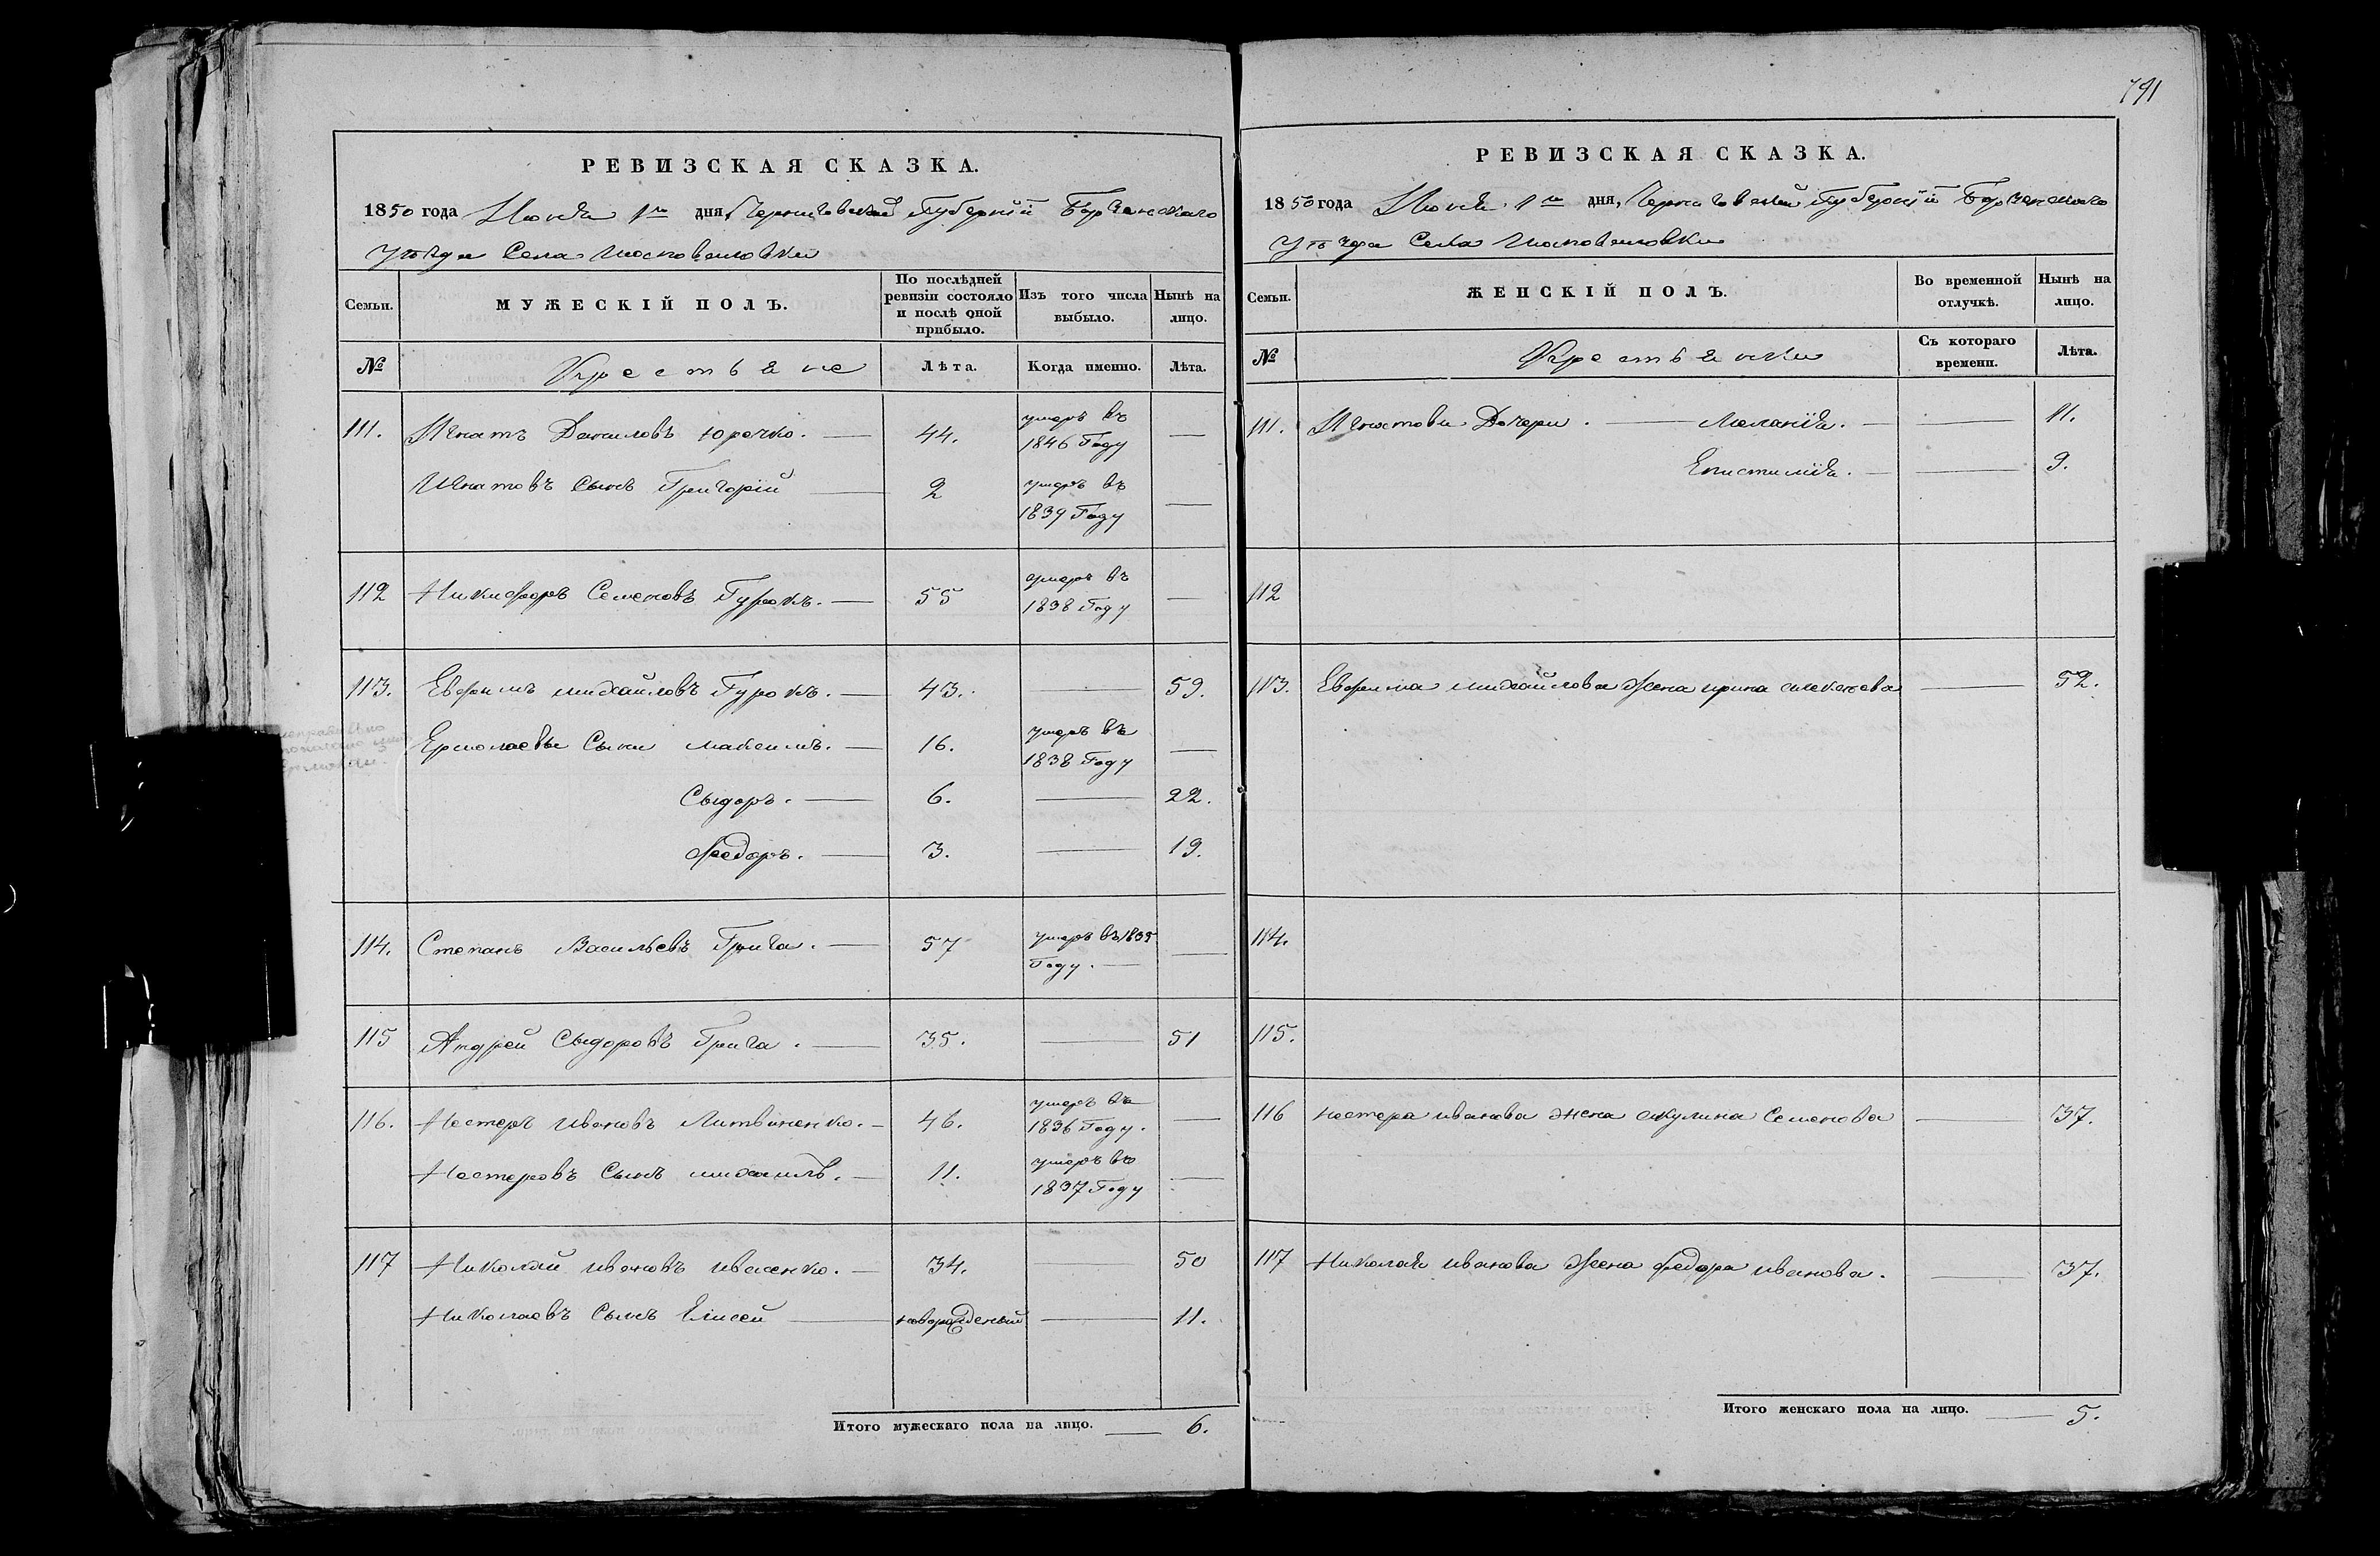 791
РЕВИЗСКАЯ СКАЗКА.
1850 года Июня 1го дня, Черниговской Губернiи Борзенскаго
Уѣзда Села
Семьи. МУЖЕСКІЙ ПОЛЪ. По послѣдней ревизіи состояло и послѣ оной прибыло. Изъ того числа выбыло. Нынѣ на лицо.
№ Крестьяне Лѣта. Когда именно. Лѣта.
111. Игнатъ Даниловъ Юречко. — 44. умеръ въ 1846 Году —
Игнатовъ Сынъ Григорій — 2 умеръ въ 1839 Году —
112 Никифоръ Семеновъ Гурокъ. — 55 умеръ въ 1838 Году —
113. Евфимъ михайловъ Гурокъ. — 43. — 59.
Ермолаевы Сыны максимъ. — 16. умеръ въ 1838 Году —
Сыдоръ. — 6. — 22.
Федоръ. — 3. — 19.
114. Степанъ Васильевъ Грига. — 57 умеръ въ 1835 Году. —
115 Андрей Сыдоровъ Грига. — 35. — 51
116. Нестеръ ивановъ Литвиненко. — 46. умеръ въ 1836 Году. —
Нестеровъ Сынъ михаилъ. — 11. умеръ въ 1837 Году —
117 Николай ивановъ ивасенко. — 34. — 50
Николаевъ Сынъ Елисей — новорожденый — 11.
Итого мужескаго пола на лицо. — 6.
РЕВИЗСКАЯ СКАЗКА.
1850 года Июня 1го дня, Черниговской Губернiи Борзенскаго
Уѣзда Села
Семьи. ЖЕНСКІЙ ПОЛЪ. Во временной отлучкѣ. Нынѣ на лицо.
№ Крестьянки Съ котораго времени. Лѣта.
111. Игнатовы Дочери. — Меланія. — 11.
Епистимія. — 9.
112
113. Евфима михайлова Жена ирина — 52.
114.
115.
116 нестера иванова жена акулина Семенова — 37.
117 Николая иванова Жена федора иванова. — 37.
Итого женскаго пола на лицо. — 5.